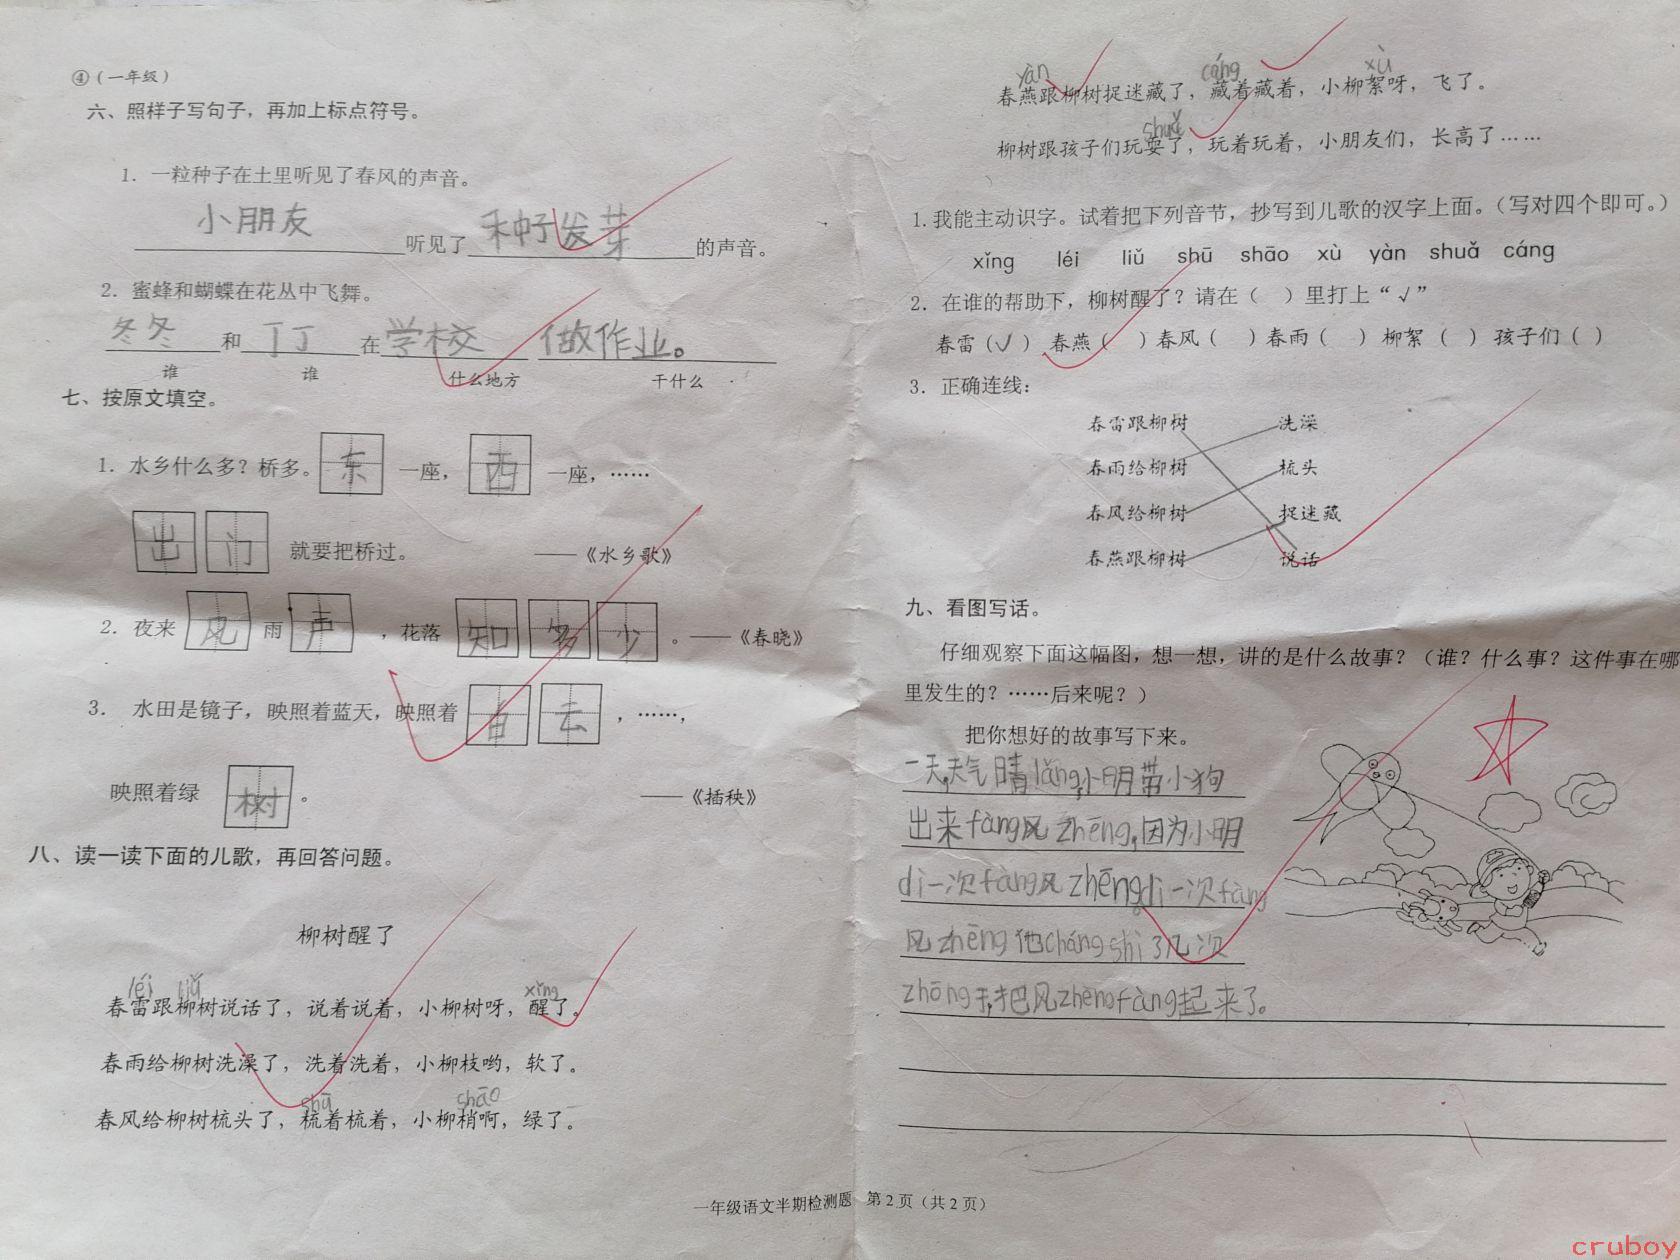 ④（一年级）
六、照样子写句子，再加上标点符号。
1. 一粒种子在土里听见了春风的声音。
小朋友听见了种子发芽的声音。
2. 蜜蜂和蝴蝶在花丛中飞舞。
冬冬和丁丁在学校 做作业。
谁 谁 什么地方 干什么
七、按原文填空。
1. 水乡什么多？桥多。东一座，西一座，……
出门就要把桥过。 ——《水乡歌》
2. 夜来风雨声，花落知多少。——《春晓》
3. 水田是镜子，映照着蓝天，映照着白云，……，
映照着绿树。 ——《插秧》
八、读一读下面的儿歌，再回答问题。
柳树醒了
léi liǔ xǐng
春雷跟柳树说话了，说着说着，小柳树呀，醒了。
春雨给柳树洗澡了，洗着洗着，小柳枝哟，软了。
shū shāo
春风给柳树梳头了，梳着梳着，小柳梢啊，绿了。
yàn cáng xù
春燕跟柳树捉迷藏了，藏着藏着，小柳絮呀，飞了。
shuǎ
柳树跟孩子们玩耍了，玩着玩着，小朋友们，长高了……
1.我能主动识字。试着把下列音节，抄写到儿歌的汉字上面。（写对四个即可。）
xǐng léi liǔ shū shāo xù yàn shuǎ cáng
2. 在谁的帮助下，柳树醒了？请在（ ）里打上“√”
春雷（√） 春燕（ ）春风（ ）春雨（ ）柳絮（ ）孩子们（ ）
3. 正确连线：
春雷跟柳树 洗澡
春雨给柳树 梳头
春风给柳树 捉迷藏
春燕跟柳树 说话
九、看图写话。
仔细观察下面这幅图，想一想，讲的是什么故事？（谁？什么事？这件事在哪
里发生的？……后来呢？）
把你想好的故事写下来。
一天，天气晴lǎng，小明带小狗
出来fàng风zhēng，因为小明
dì一次fàng风zhēng，dì一次fàng
风zhēng他cháng shì了几次
zhōng于，把风zhēng fàng起来了。
一年级语文半期检测题 第2页（共2页）
cruboy